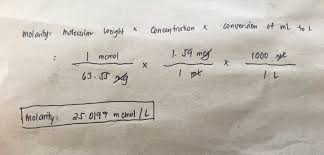 Molarity: Molecular Weight × Concentration × conversion of mL to L
: 1 mcmol / 63.55 mcg × 1.59 mcg / 1 mL × 1000 mL / 1 L
Molarity: 25.0197 mcmol / L